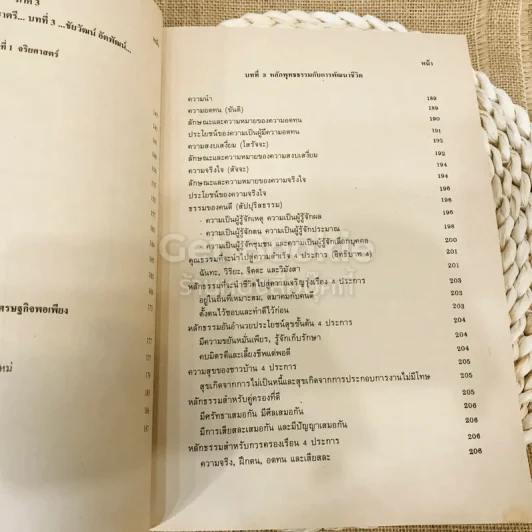 ภาค 3
บทที่ 3 ...ชัยวัฒน์ อัตพัฒน์...
ที่ 1 จริยศาสตร์
เศรษฐกิจพอเพียง
ใหม่
173
177
187
หน้า
บทที่ 3 หลักพุทธธรรมกับการพัฒนาชีวิต
ความนำ 189
ความอดทน (ขันติ) 189
ลักษณะและความหมายของความอดทน 190
ประโยชน์ของความเป็นผู้มีความอดทน 191
ความสงบเสงี่ยม (โสรัจจะ) 192
ลักษณะและความหมายของความสงบเสงี่ยม 192
ความจริงใจ (สัจจะ) 194
ลักษณะและความหมายของความจริงใจ 194
ประโยชน์ของความจริงใจ 196
ธรรมของคนดี (สัปปุริสธรรม) 196
- ความเป็นผู้รู้จักเหตุ ความเป็นผู้รู้จักผล 198
- ความเป็นผู้รู้จักตน ความเป็นผู้รู้จักประมาณ
- ความเป็นผู้รู้จักชุมชน และความเป็นผู้รู้จักเลือกบุคคล 200
คุณธรรมที่จะนำไปสู่ความสำเร็จ 4 ประการ (อิทธิบาท 4) 201
ฉันทะ, วิริยะ, จิตตะ และวิมังสา 201
หลักธรรมที่จะนำชีวิตไปสู่ความเจริญรุ่งเรือง 4 ประการ 203
อยู่ในถิ่นที่เหมาะสม, สมาคมกับคนดี 203
ตั้งตนไว้ชอบและทำดีไว้ก่อน
หลักธรรมอันอำนวยประโยชน์สุขขั้นต้น 4 ประการ 204
มีความขยันหมั่นเพียร, รู้จักเก็บรักษา 204
คบมิตรดีและเลี้ยงชีพแต่พอดี
ความสุขของชาวบ้าน 4 ประการ 205
สุขเกิดจากการไม่เป็นหนี้และสุขเกิดจากการประกอบการงานไม่มีโทษ
หลักธรรมสำหรับคู่ครองที่ดี 205
มีศรัทธาเสมอกัน มีศีลเสมอกัน 205
มีการเสียสละเสมอกัน และมีปัญญาเสมอกัน
หลักธรรมสำหรับการครองเรือน 4 ประการ 206
ความจริง, ฝึกตน, อดทน และเสียสละ 206